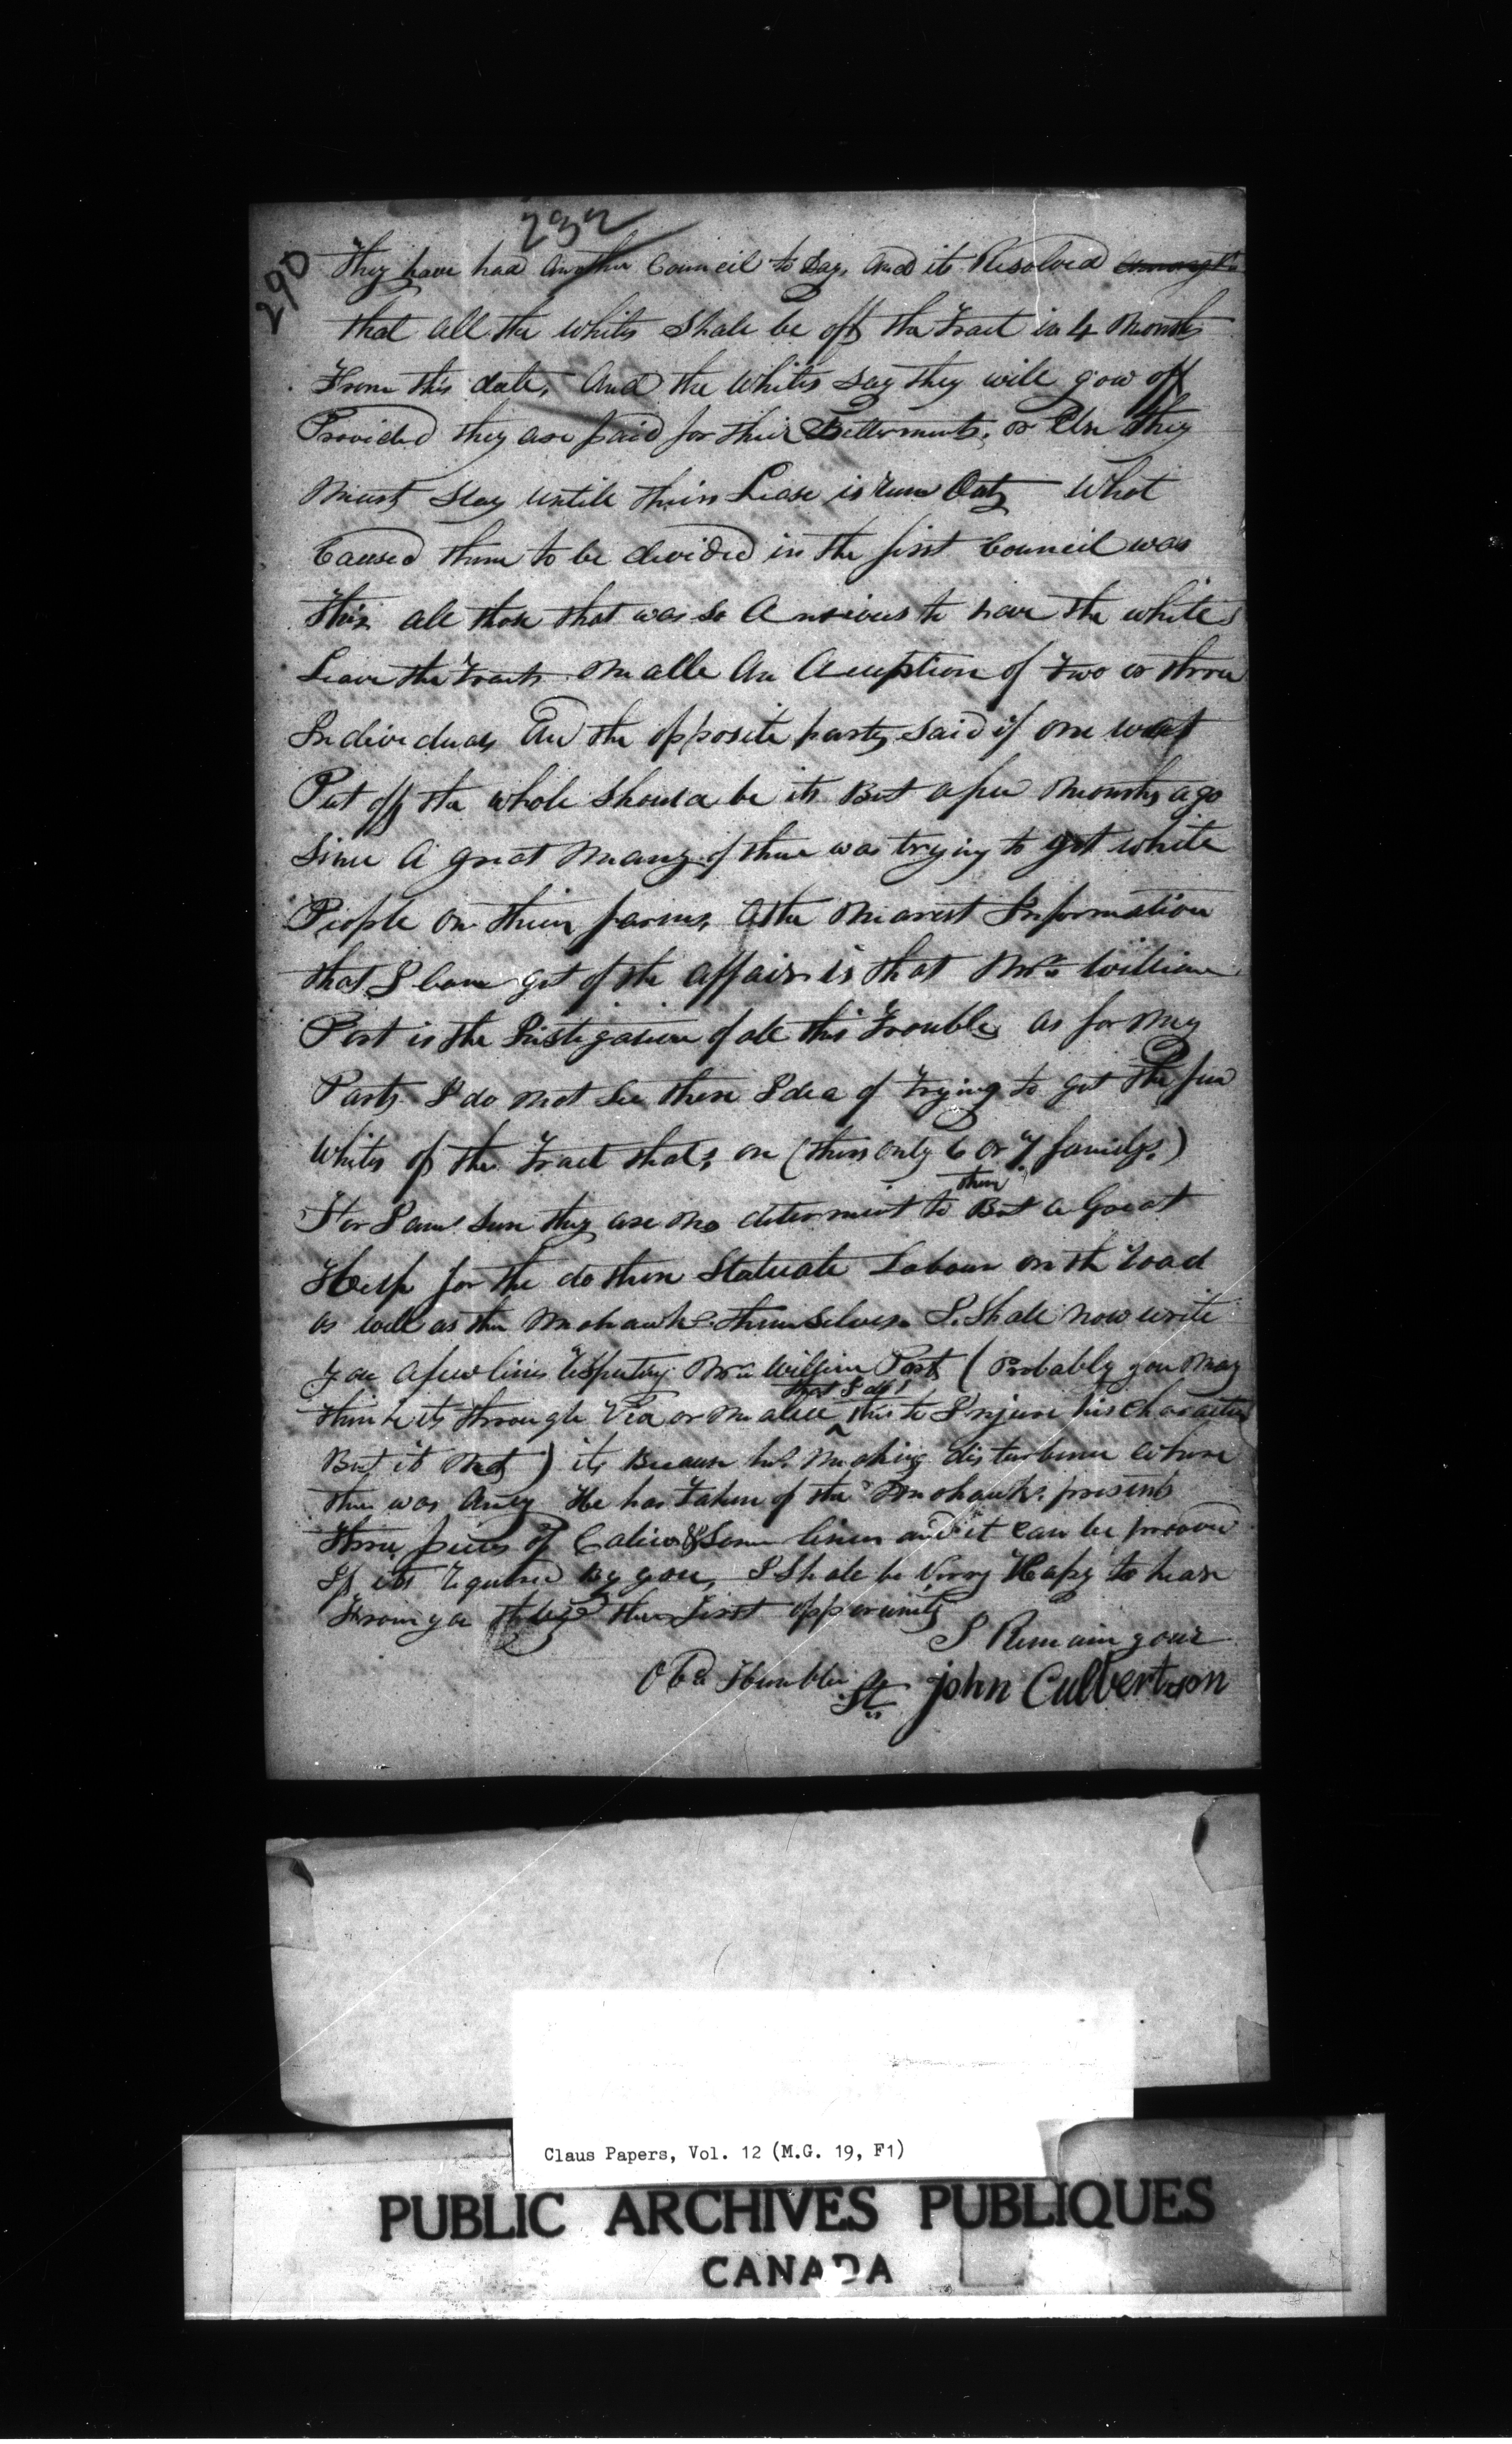 232
290
They have had Another Council to Day, And its Resolved
that all the Whites Shale be off the Tract in 4 Months
From this date, And the Whites say they will gow off
Provided they are paid for their Betterments, or Else they
Must Stay untill their Lease is run Out, What
Caused them to be devided in the first Council was
this all those that was so Anxious to have the whites
Leave the Tract Made An Aception of two or three
Individuals And the opposite party said if one was
Put off the whole Should be its But a few Months ago
Since A great Many of them was trying to get white
People on their farms, the Nearest Information
that I have got of the affair is that Mr. William
Post is the Instigation of all this Trouble as for My
Part I do not See there Idea of trying to get the few
Whites of the Tract that's on (theirs only 6 or 7 familys.)
For I am Sure they are no determint to them But a Great
Help for the do there Statuate Labour on the Road
as well as the Mohawks themselves I Shale now write
you a few lines Respecting Mr. William Post (Probably you May
think its through or Malice that I do this to Injure his Character
But it Not) its Because he's Making disturbence where
there was Any He has Taken of the Mohawks presents
three pieces of Calico & Some linen and it can be prooved
If its Required by you, I Shale be Verry Hapy to hear
From you the first opporunity
I Remain your
Obd Humble St.
John Culbertson
Claus Papers, Vol. 12 (M.G. 19, F1)
PUBLIC ARCHIVES PUBLIQUES
CANADA